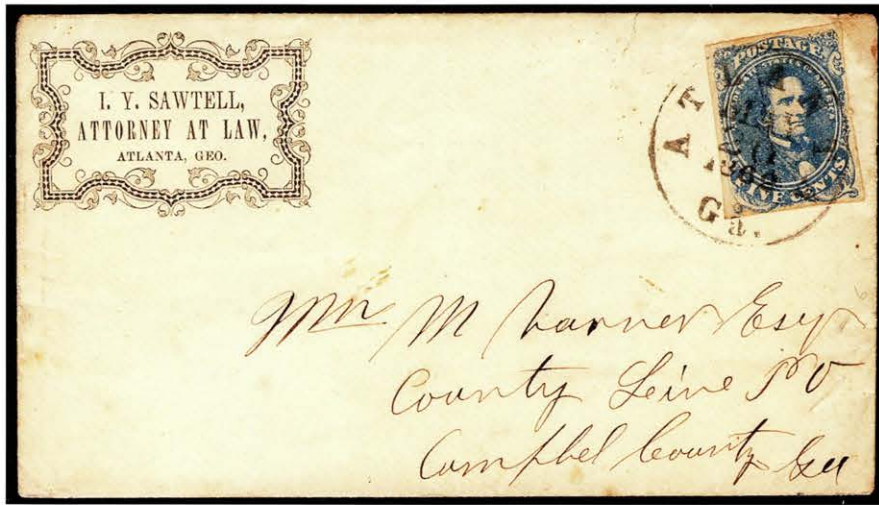 I. Y. SAWTELL,
ATTORNEY AT LAW,
ATLANTA, GEO.
POSTAGE
FIVE CENTS
1862
Ga.
Wm M Varner Esqr
County Leine PO
Campbel County Geo